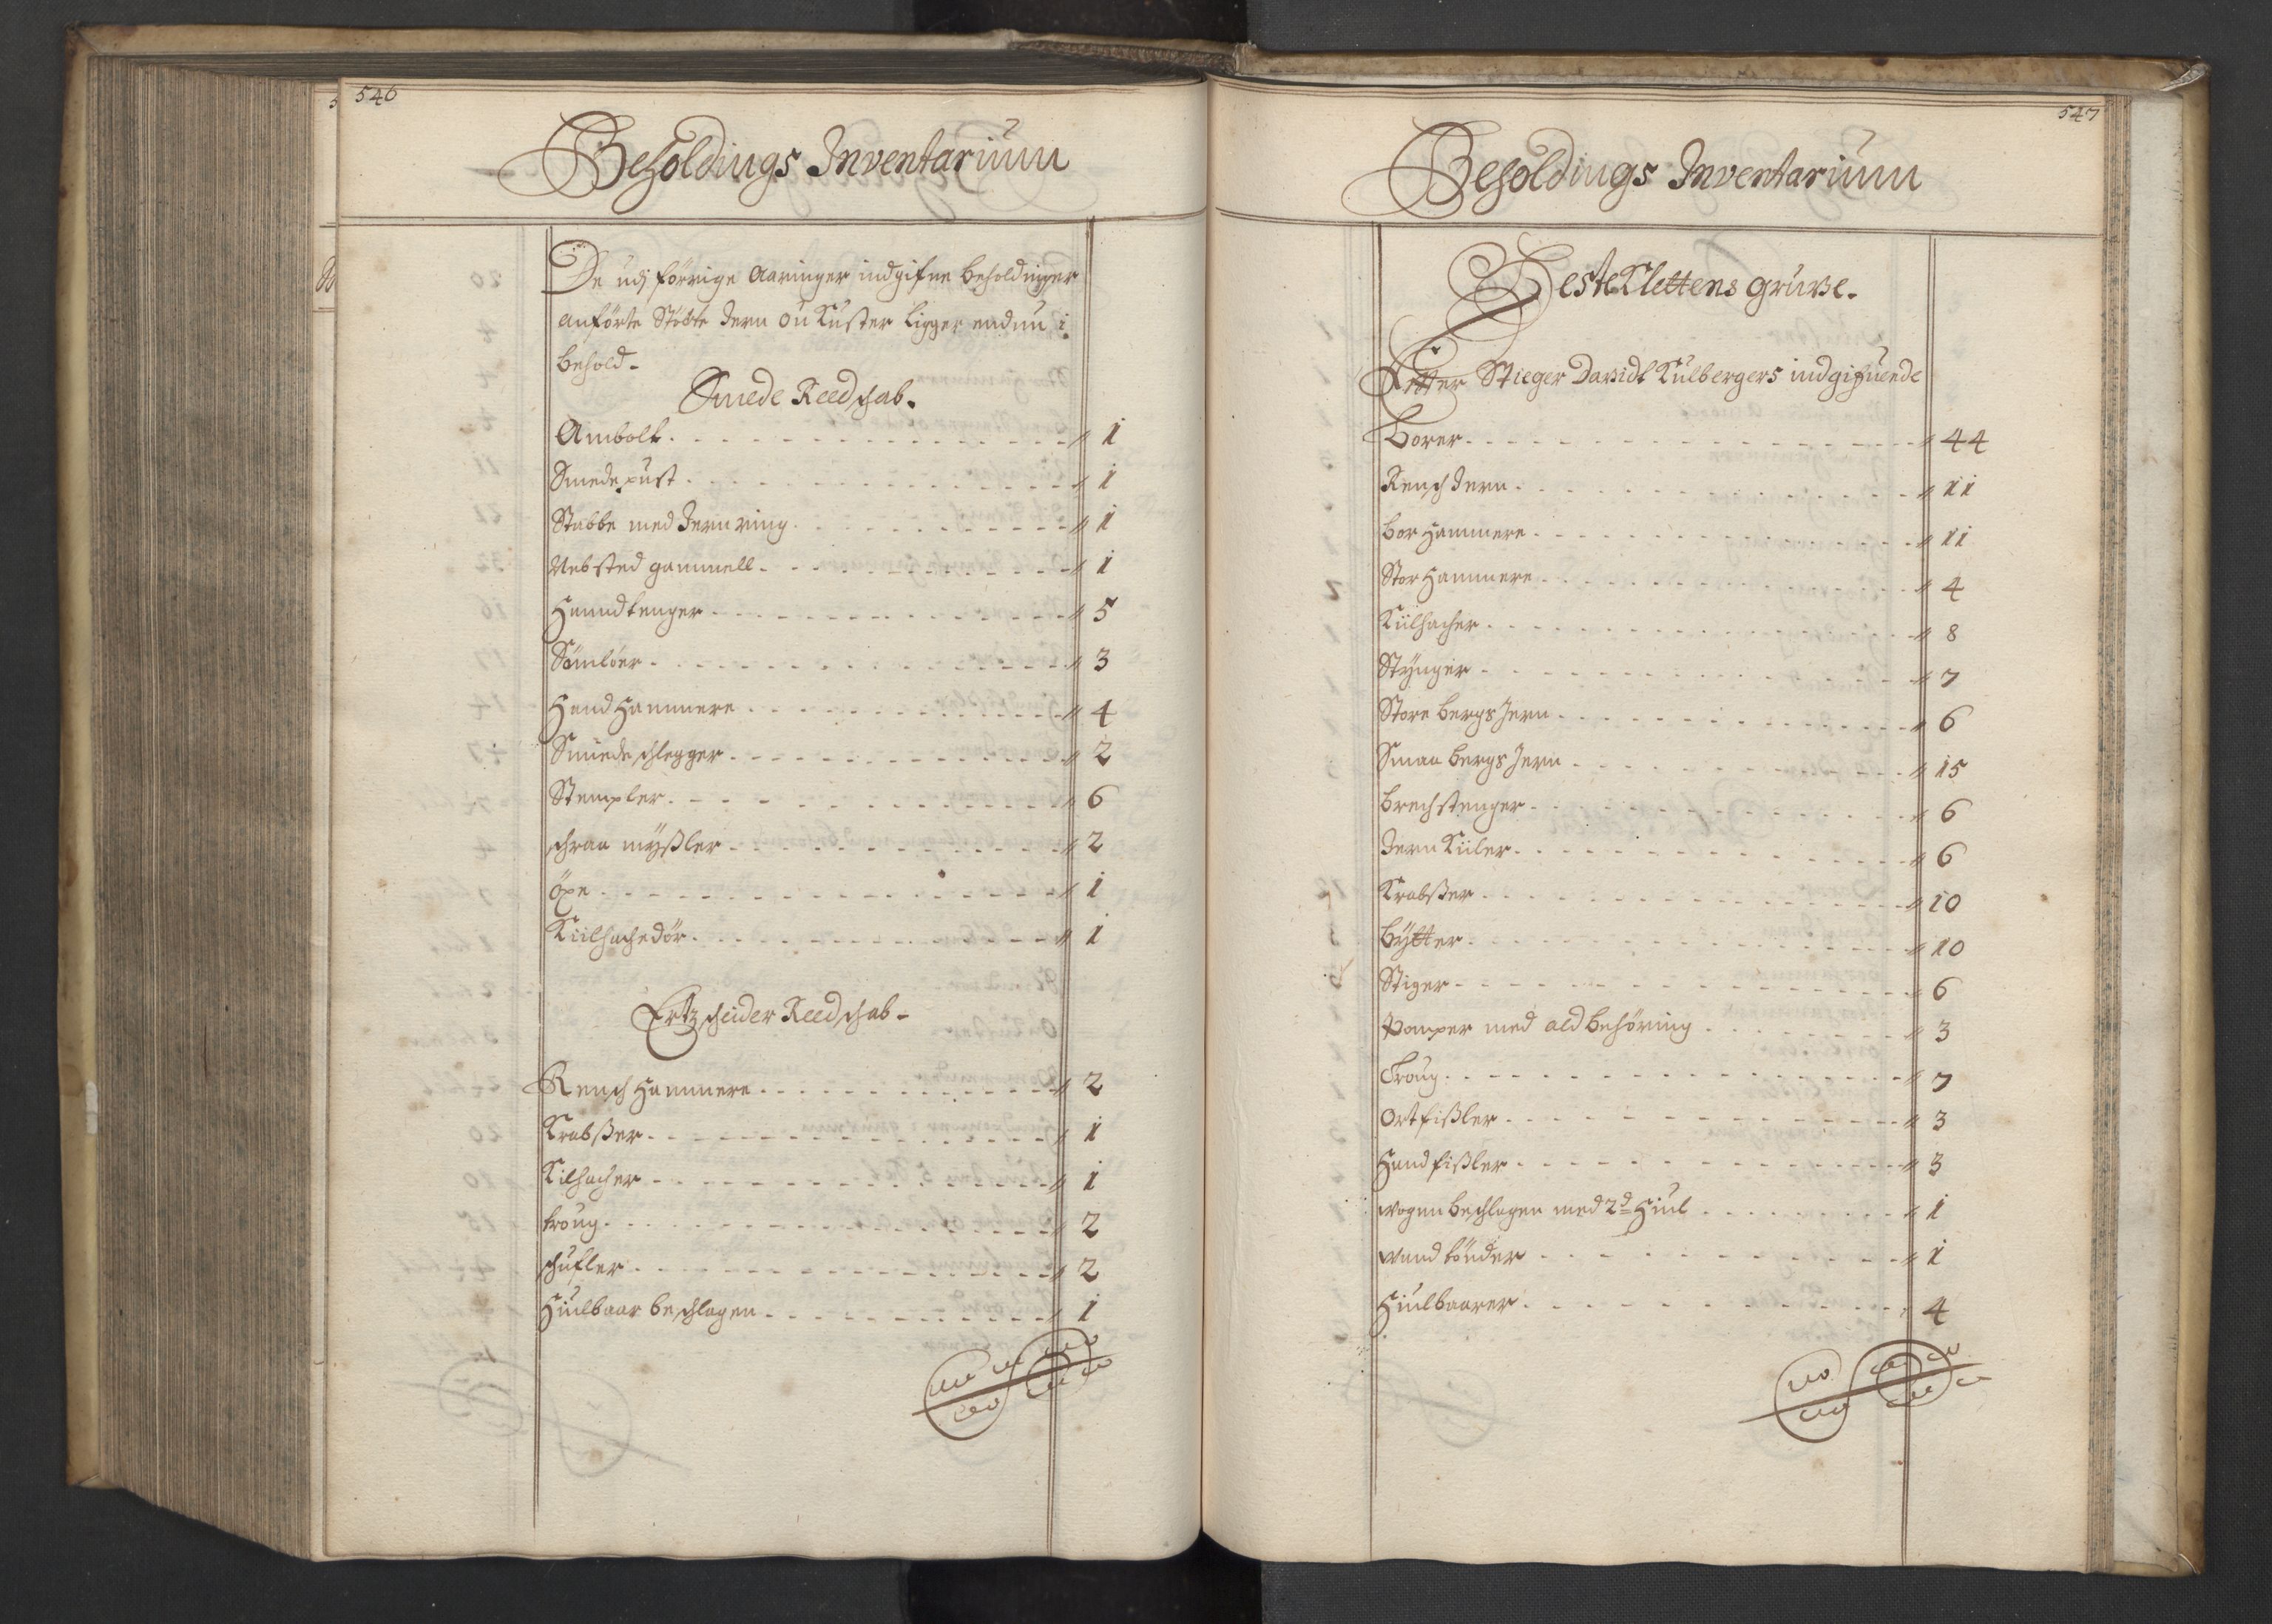 546
Beholdings Inventarium
De udj förrige Aaringer indgifne beholdninger
anförte Stötte Jern ou Kuster ligger endnu i
behold-
Smede Reedschab.
Ambolt - // 1
Smede pust - // 1
Stabbe med Jern ring - // 1
Nebsted gammell - // 1
Haandtenger - // 5
Sömlöer - // 3
Hand Hammere - // 4
Smede schlegger - // 2
Stempler - // 6
schraa myßler - // 2
öxe - // 1
Kiilhachedör - // 1
Ertzscheider Reedschab-
Rensch Hammere - // 2
Krabßer - // 1
Kilhacher - // 1
troug - // 2
schufler - // 2
Hiulbaar beschlagen - // 1
547
Beholdings Inventarium
HesteKlettens gruve.
Effter Stieger Davidt Kulbergers indgifuende
borer - // 44
Rensch Jern - // 11
bor Hammere - // 11
Stor Hammere - // 4
Kiilhacher - // 8
Stÿnger - // 7
Store bergs Jern - // 6
Smaa bergs Jern - // 15
brechstenger - // 6
Jern Kiiler - // 6
Krabßer - // 10
bÿtter - // 10
Stiger - // 6
Pomper med ald behöring - // 3
Troug - // 7
Ortfißler - // 3
Handfißler - // 3
wogen beschlagen med 2d Hiul - // 1
vand tönder - // 1
Hiulbaarer - // 4